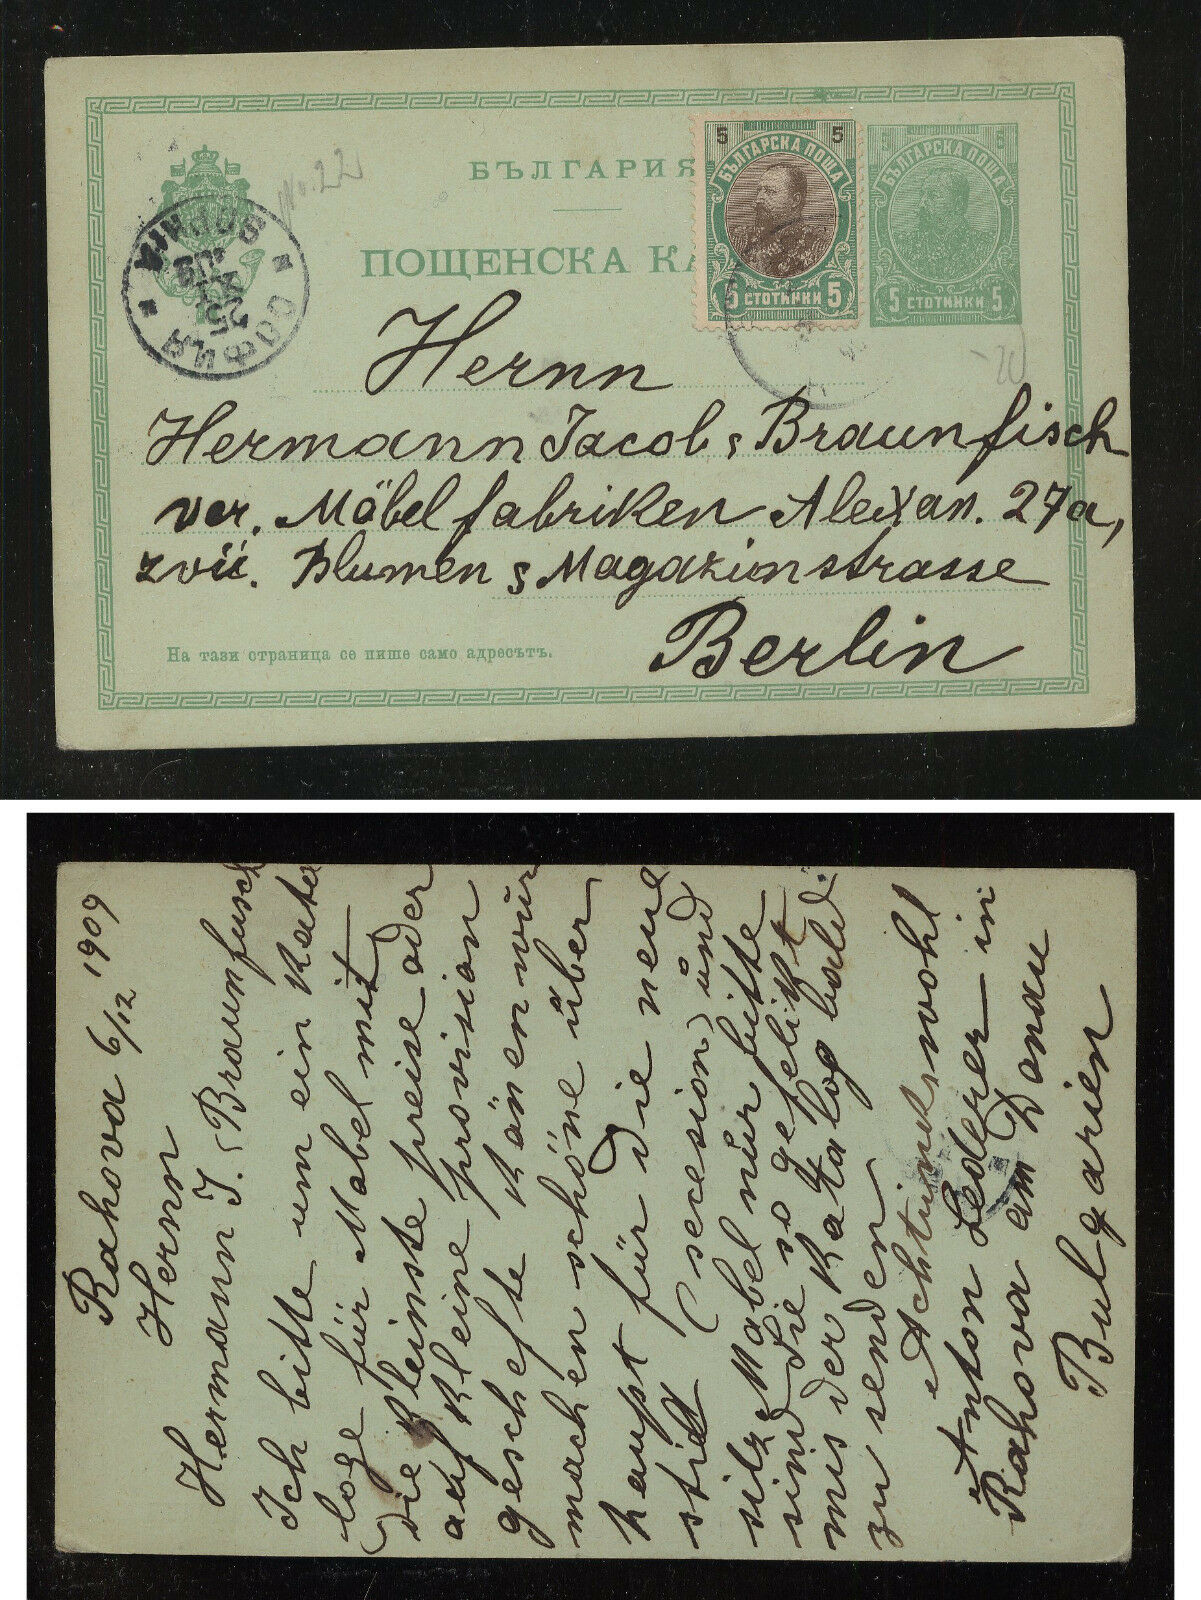 БЪЛГАРИЯ
ПОЩЕНСКА КА
No. 22
5 5
БЪЛГАРСКА ПОЩА
5 СТОТИНКИ 5
5 5
БЪЛГАРСКА ПОЩА
5 СТОТИНКИ 5
СОФИЯ
SOPHIA
25
XI
09
-20
Hernn
Hermann Jacob & Braunfisch
ver. Möbelfabriken Alexan. 27a,
zvü. Blumen & Magazinstrasse
Berlin
На тази страница се пише само адресътъ.
Rahova 6/12 1909
Hernn
Hermann J. & Braunfusch
Ich bitte um ein Kata
loge für Mabel mit
die kleinste preise oder
auf kleine provisian
geschefte Känen wür
machen schöne über
haupt für die neue
stiel (secesion) und
sitz Mabel nür bitte
sind Sie so gefelikt
mis der Katalog bald
zu senden.
Achtunksvohl
Anton Lederer in
Rahova am Donau
Bulgarien